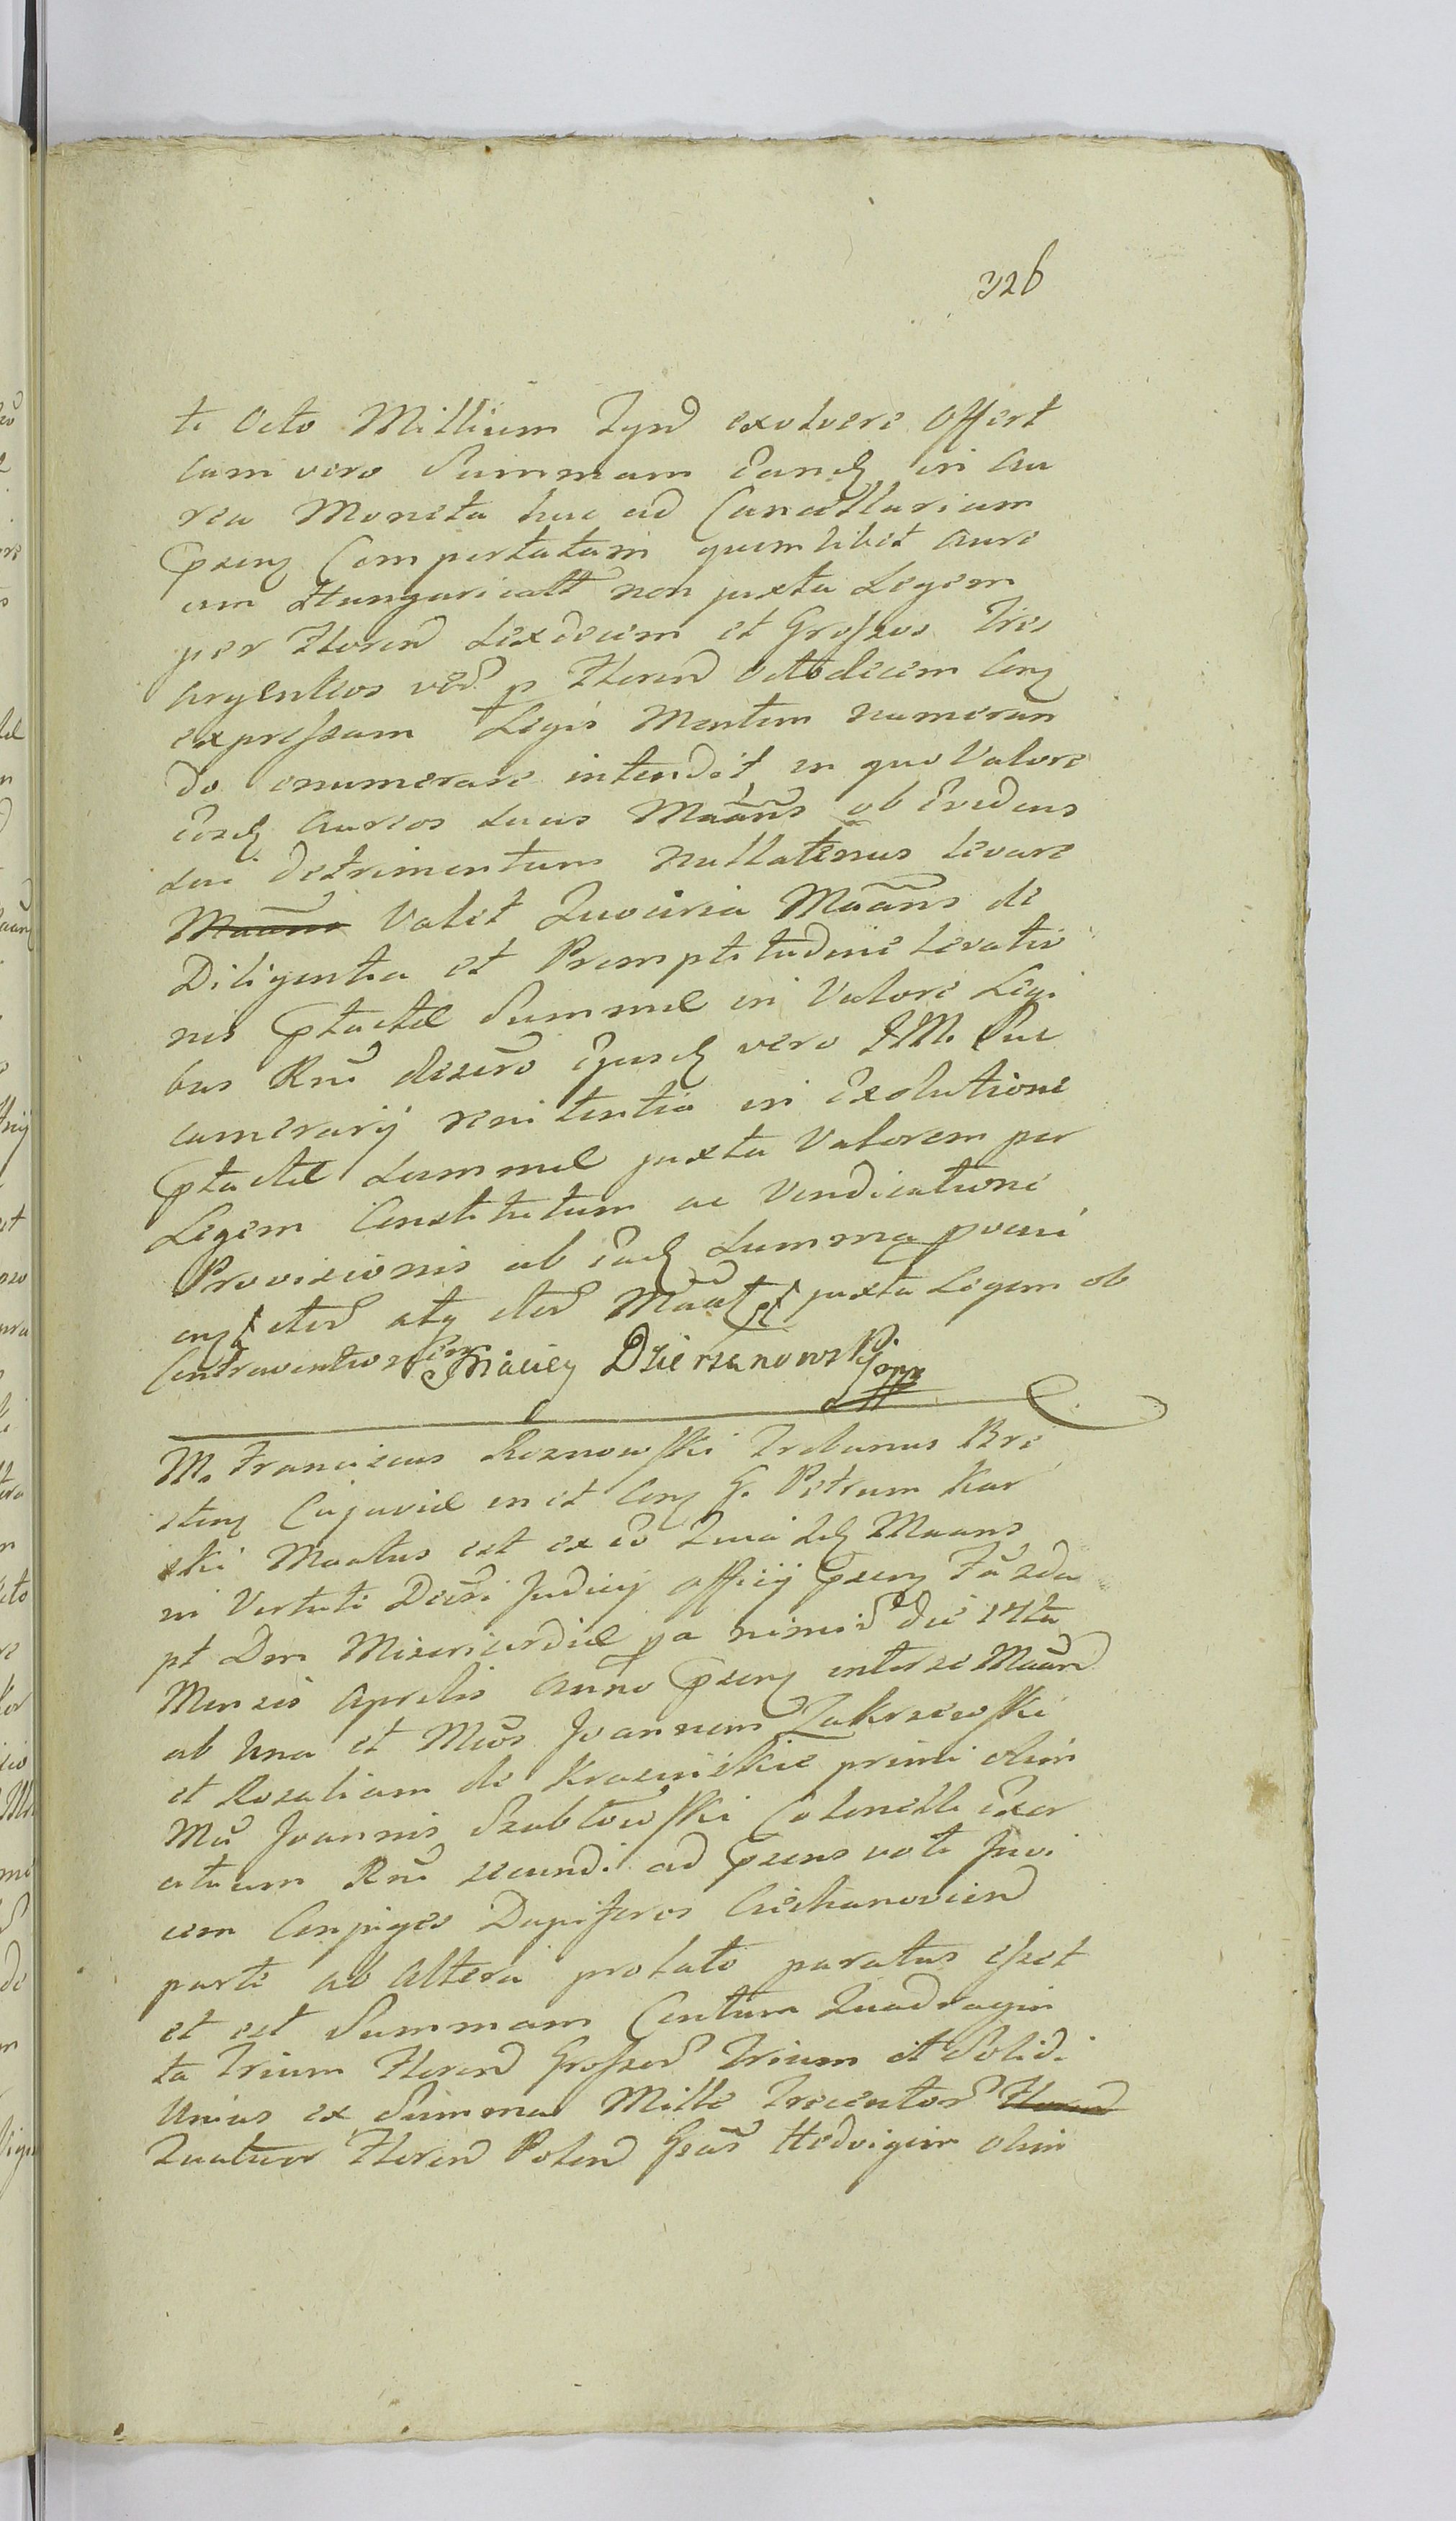 326
ti Octo Millium Tynd exolvere offert
cum vero Summam Eand in Au
rea Moneta huc ad Cancellariam
Psens Comportatam quemlibet Aure
um Hungaricalt non juxta Legem
per Floren Sexdecim et Grossos Tres
Argenteos ved p Floren Octodecim Con
expressam Legis Mentem numeran
do enumerare intendit in quo Valore
Eosd Aureos suos Maans ob Evidens
sui detrimentum nullatenus levare
Maans Valet Quocirca Maans de
Diligentia et Promptitudine levatio
nis Ptactæ Summæ in Valore Legi
bus Rni Ejusd vero JM. Suc
camerarij renitentia in Exolutione
Ptactæ Summæ juxta Valorem per
Legem Constitutum ac Vendicatione
Provisionis ab Ead Summa
iterd atq iterd juxta Legem ob
Contraventionem Maciey Dzierzanowski
M. Franciscus Roznowski Tribunus Bre
stens Cujaviæ in et Con G. Petrum Kar
ski Maatus est ex eo Quia Id Maans
in Vertuti Decri Judicij officij Psens
pt Dom Misericordiæ pa die 17ta
Mensis Aprilis Anno Psens inter se Maan
ab Una et Mcos Joannem Zakrzewski
et Rosaliam de Krasinskie primi olim
Mci Joannis Szabłowski Colonelli Exer
ituum Rni secundi ad Psens voti Invi
cem Conjuges Dapiferos Ciechanovien
parte ab Altera prolato paratus esset
et est Summam Centum Quadragin
ta Trium Floren Grossor Trium et Solidi
Unius ex Summa Mille Trecentor Floren
Quatuor Floren Polon Gsam Hedvigim olim